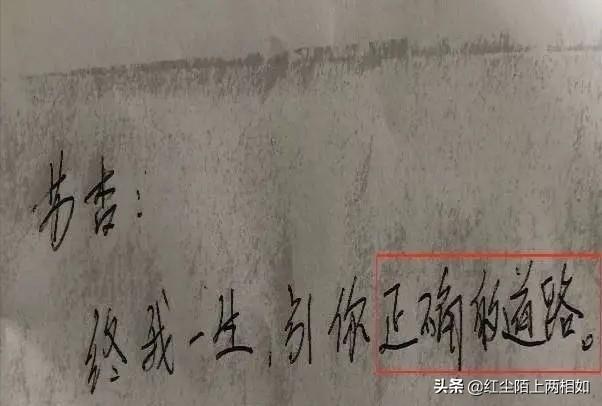 芳杏：
终我一生，引你正确的道路。
头条 @红尘陌上两相如